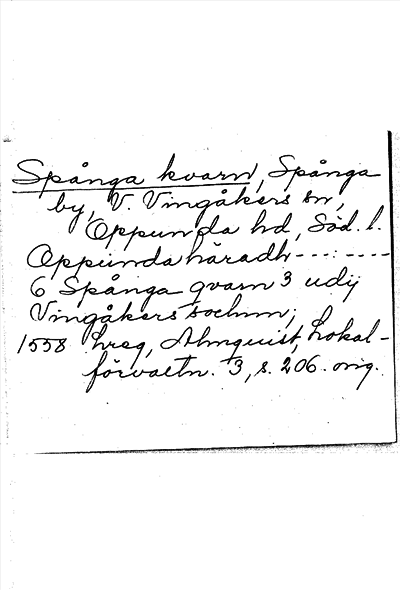 Spånga kvarn, Spånga
by, V. Vingåkers sn,
Oppunda hd, Söd. l.
Oppunda häradh---:----
6 Spånga qvarn 3 udij
Vingåkers sochnn;
1558 hreg, Almquist, Lokal-
förvaltn. 3, s. 206. orig.